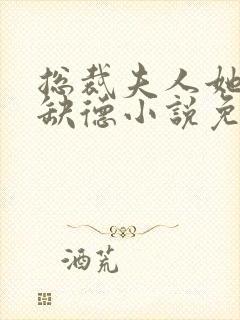 总裁夫人她
缺德小說免
酒荒